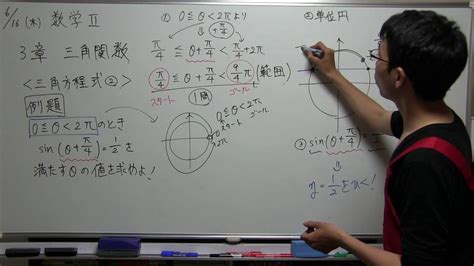 6/16 (木) 数学Ⅱ
3章 三角関数
<三角方程式②>
例題
0≦θ<2πのとき
sin(θ+π/4)=1/2を
満たすθの値を求めよ!
① 0≦θ<2πより
+π/4
π/4≦θ+π/4<π/4+2π
π/4≦θ+π/4<9/4π(範囲)
スタート ゴール
1周
0≦θ<2π
スタート ゴール
0
2π
②単位円
③ sin(θ+π/4)=
y=1/2をひく!